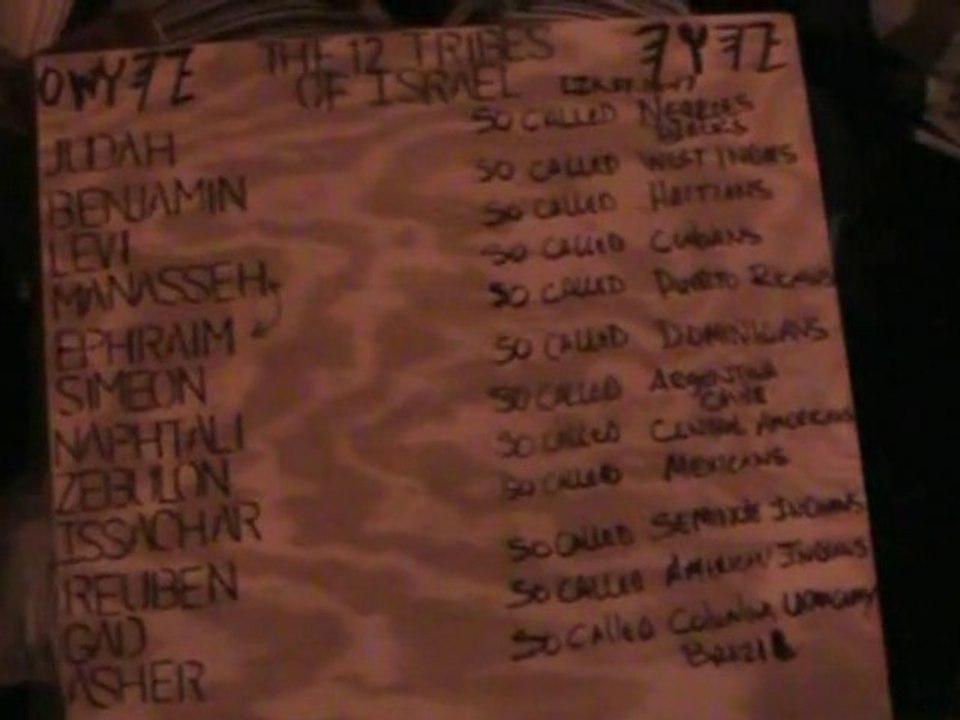 THE 12 TRIBES
OF ISRAEL
JUDAH SO CALLED NEGROES
BENJAMIN SO CALLED WEST INDIES
LEVI SO CALLED HAITIANS
MANASSEH SO CALLED CUBANS
EPHRAIM SO CALLED PUERTO RICANS
SIMEON SO CALLED DOMINICANS
NAPHTALI SO CALLED ARGENTINA
CHILE
ZEBULON SO CALLED CENTRAL AMERICANS
ISSACHAR SO CALLED MEXICANS
REUBEN SO CALLED SEMINOLE INDIANS
GAD SO CALLED AMERICAN INDIANS
ASHER SO CALLED COLOMBIA URUGUAY
BRAZIL